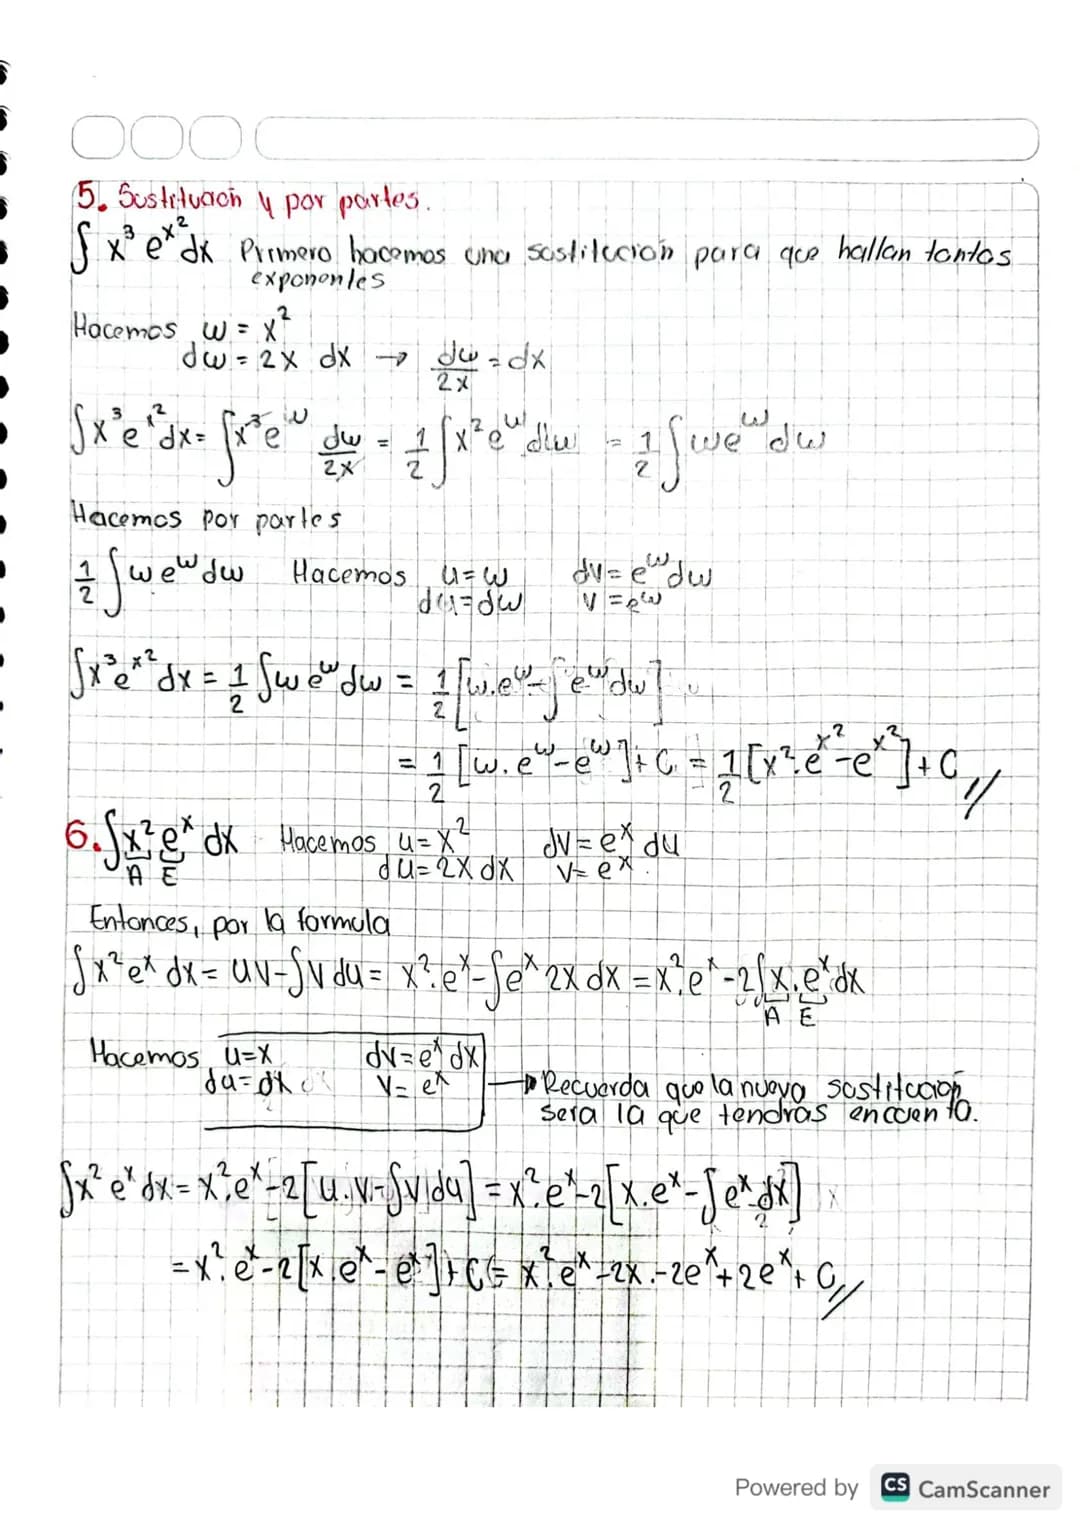 5. Sustitución y por partes.
∫ x³ e^x² dx Primero hacemos una sostitución para que hallan tantos
exponentes
Hacemos w = x²
dw = 2x dx → dw/2x = dx
∫x³e^x² dx = ∫x³e^w dw/2x = 1/2 ∫x² e^w dw = 1/2 ∫we^w dw
Hacemos por partes
1/2 ∫we^w dw Hacemos u=w dv=e^w dw
du=dw v=e^w
∫x³e^x² dx = 1/2 ∫we^w dw = 1/2 [w.e^w-∫e^w dw]
= 1/2 [w.e^w-e^w]+C = 1/2 [x².e^x²-e^x²]+C //
6. ∫x² e^x dx Hacemos u=x² dv=e^x du
A E du=2x dx v=e^x.
Entonces, por la formula
∫x²e^x dx = uv-∫v du = x².e^x-∫e^x 2x dx = x².e^x-2∫x.e^x dx
A E
Hacemos u=x dv=e^x dx
du=dx v=e^x → Recuerda que la nueva sostitucion
sera la que tendras encuenta.
∫x² e^x dx = x².e^x-2[u.v-∫v du] = x².e^x-2[x.e^x-∫e^x dx]
= x².e^x-2[x.e^x-e^x]+C = x².e^x-2x.-2e^x+2e^x+C //
Powered by CS CamScanner